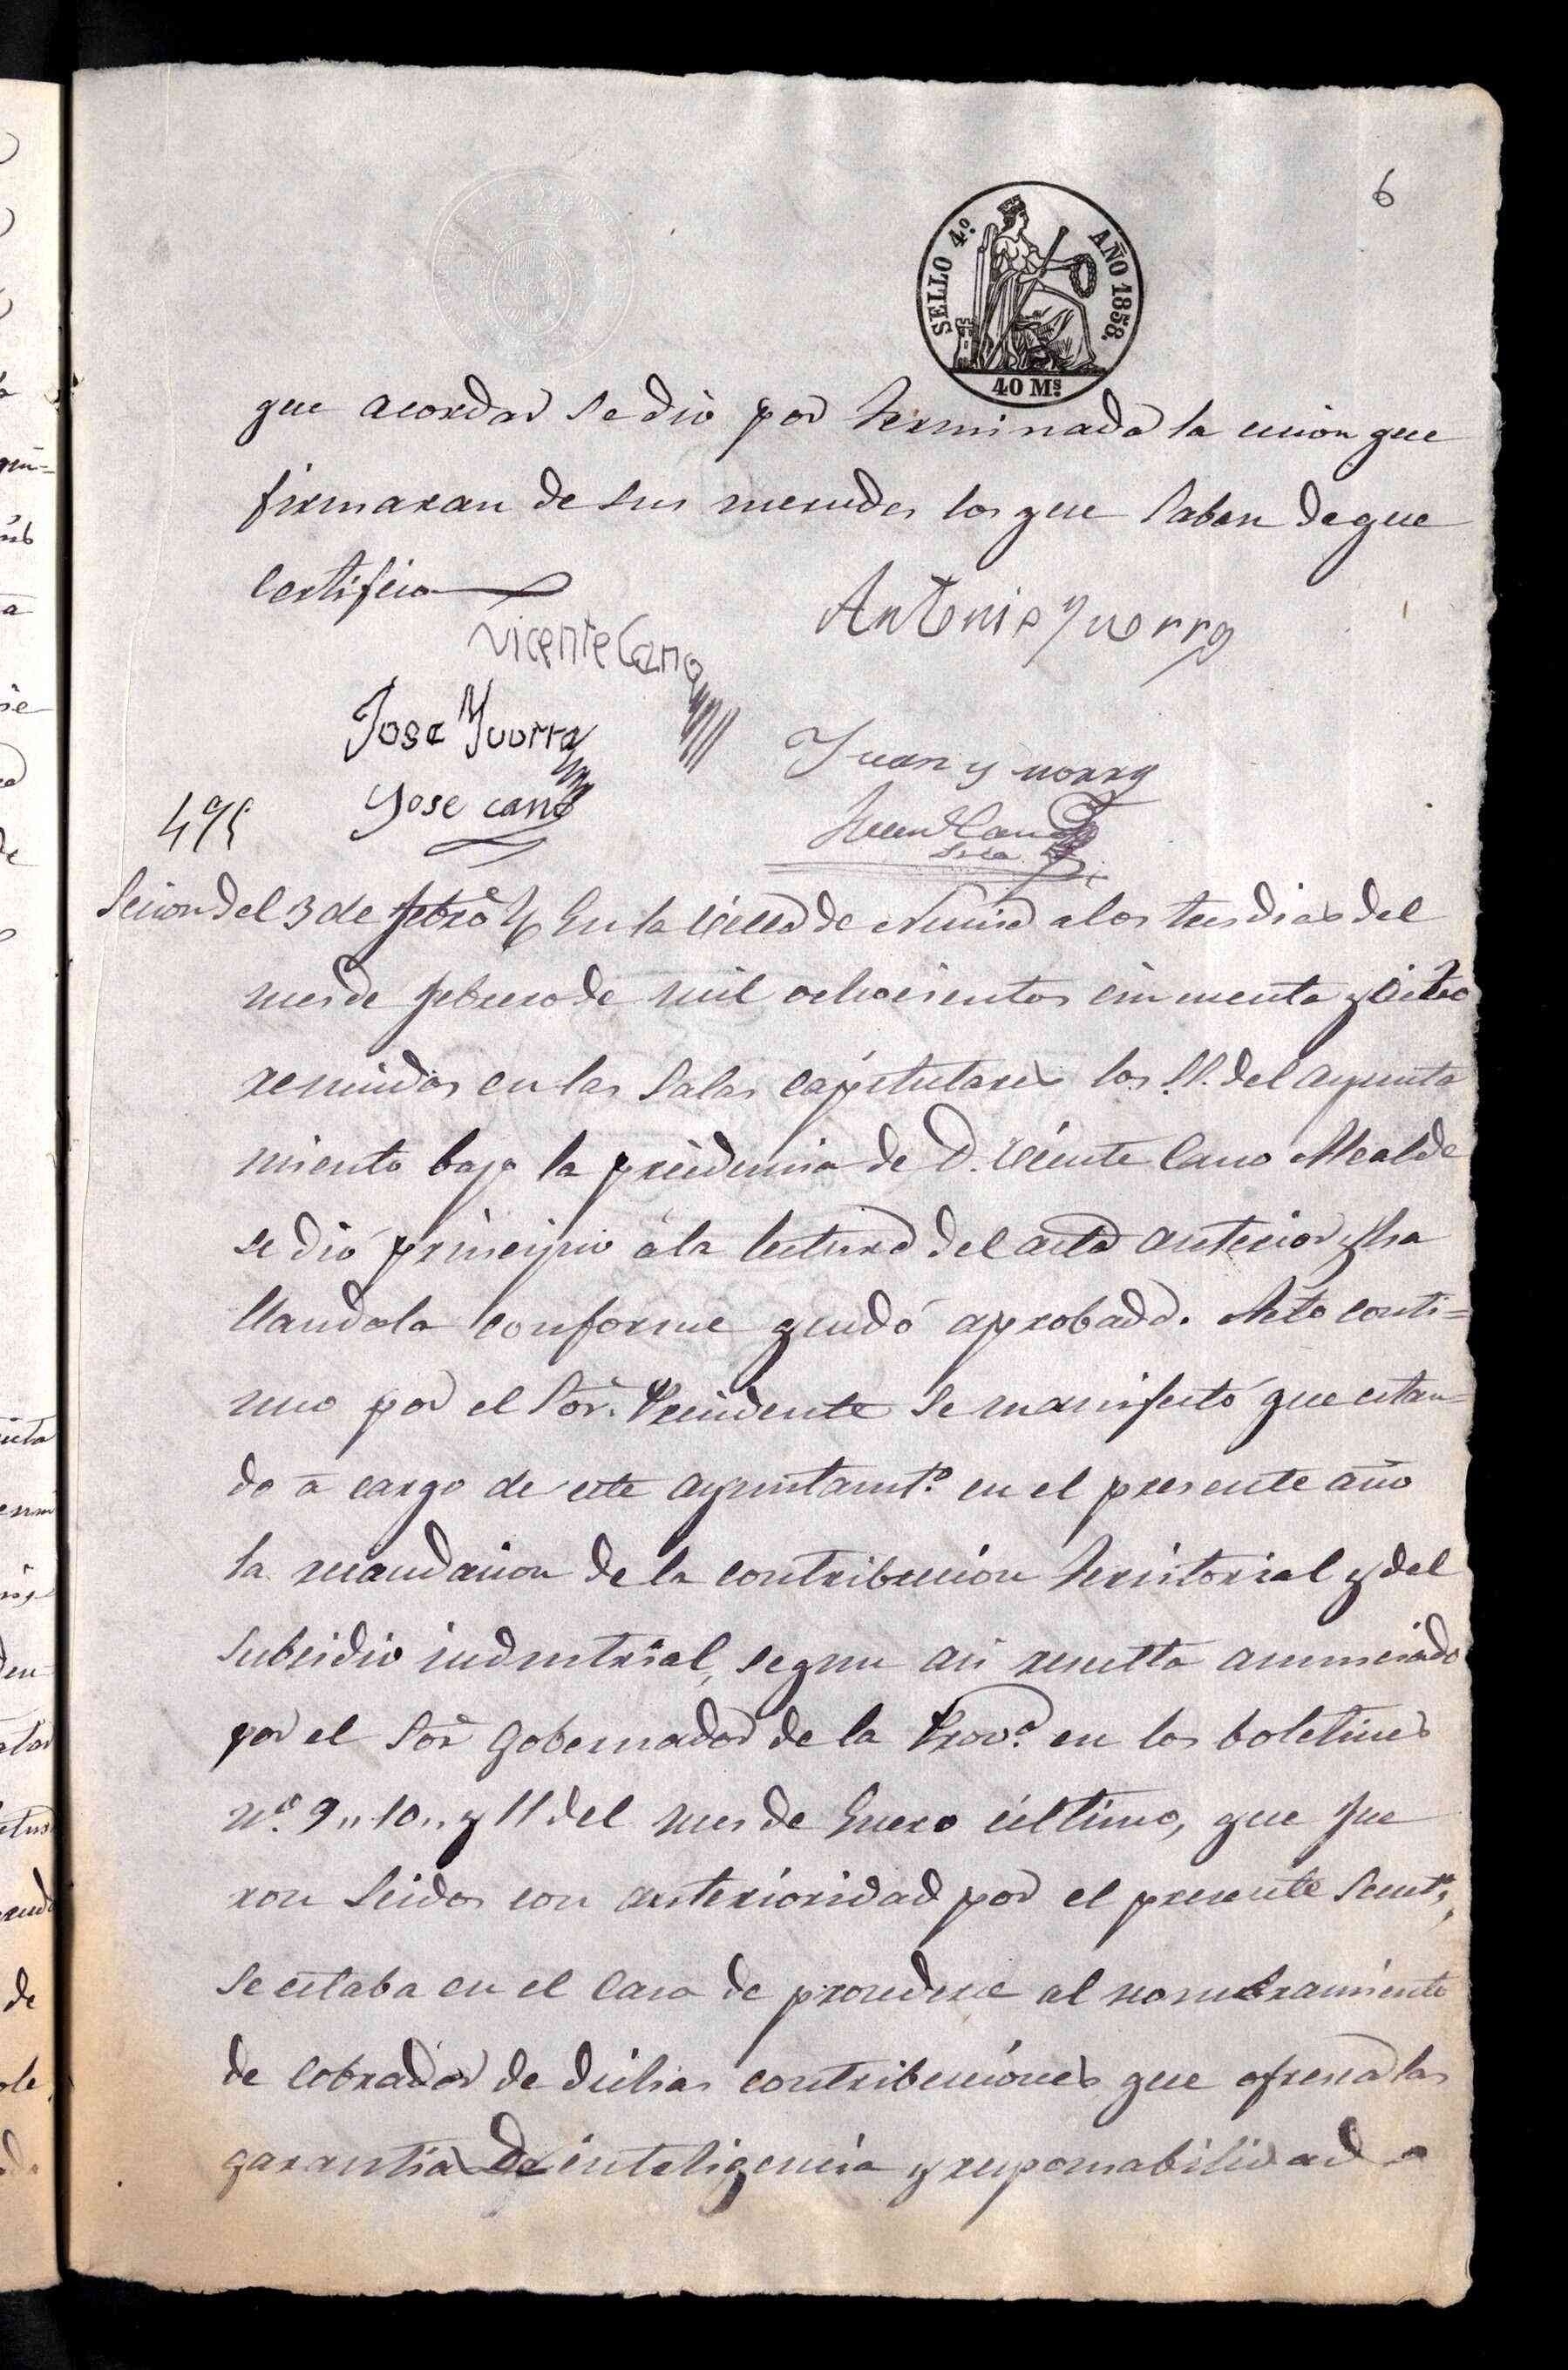 6
SELLO 4º AÑO 1858.
40 Ms
que acordar se dió por terminada la cecion que
firmaran de sus mercedes los que saben de que
certifico
Vicente Cano
Antonio Yvorra
Jose Yvorra
Juan Yvorra
Jose Cano
Juan Cano
Srio
Secion del 3 de febro En la Villa de Nucia a los tres dias del
mes de febrero de mil ochocientos cincuenta y ocho
reunidos en las Salas capitulares los SS. del ayunta
miento bajo la precidencia de D. Vicente Cano Alcalde
se dió principio á la lectura del acta anterior y ha
llandola conforme quedó aprobada. Acto conti=
nuo por el Sor. Precidente se manifestó que estan=
do á cargo de este ayuntamto. en el presente año
la recaudacion de la contribucion territorial y del
subsidio industrial, segun asi resulta anunciado
por el Sor Gobernador de la Prova. en los boletines
nos. 9,, 10,, y 11 del mes de Enero último, que fue
ron leidos con anterioridad por el presente Secreto,
se estaba en el caso de procederse al nombramiento
de cobrador de dichas contribuciones que ofresca las
garantias de inteligencia y responsabilidad